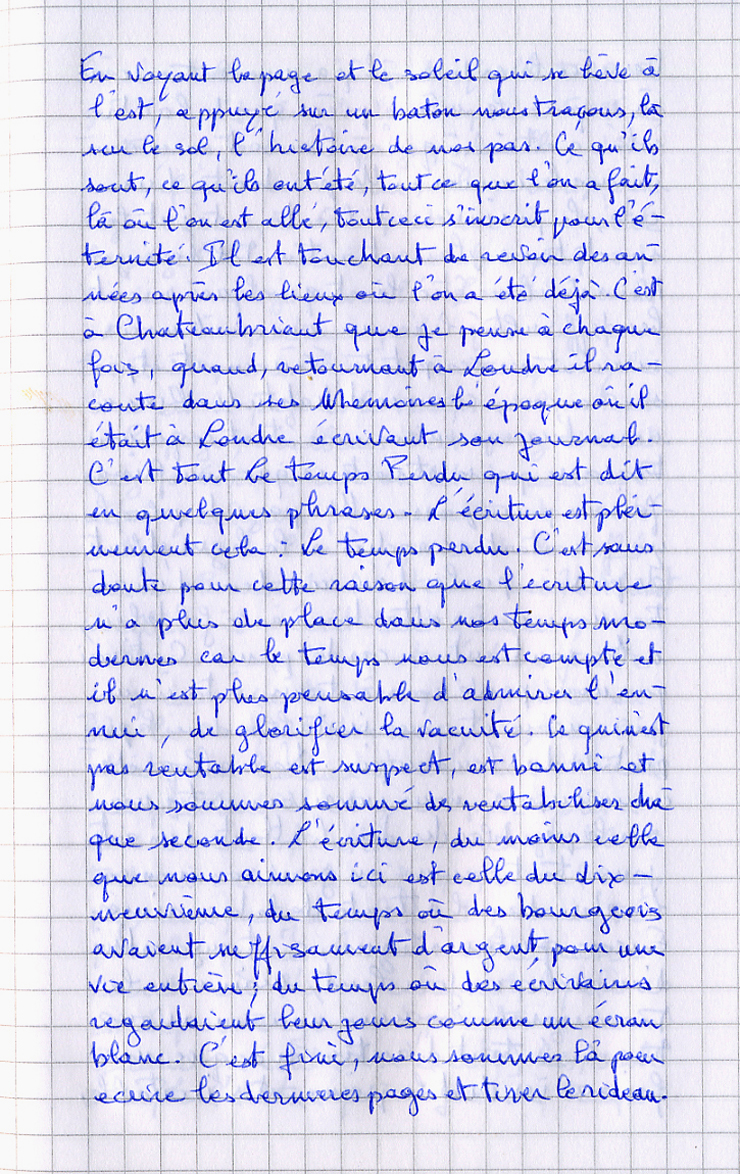 En voyant la page et le soleil qui se lève à
l'est, appuyé sur un baton nous traçons, là
sur le sol, l'histoire de nos pas. Ce qu'ils
sont, ce qu'ils ont été, tout ce que l'on a fait,
là où l'on est allé, tout ceci s'inscrit pour l'é-
ternité. Il est touchant de revoir des an
nées après les lieux où l'on a été déjà. C'est
à Chateaubriant que je pense à chaque
fois, quand, retournant à Londre il ra-
conte dans ses Mhemoires l'époque où il
était à Londre écrivant son journal.
C'est tout le temps Perdu qui est dit
en quelques phrases. L'écriture est plei-
nement cela : le temps perdu. C'est sans
doute pour cette raison que l'écriture
n'a plus de place dans nos temps mo-
dernes car le temps nous est compté et
il n'est plus pensable d'admirer l'en-
nui, de glorifier la vacuité. Ce qui n'est
pas rentable est suspect, est banni et
nous sommes sommé de rentabiliser cha
que seconde. L'écriture, du moins celle
que nous aimons ici est celle du dix-
neuvième, du temps où des bourgeois
avaient suffisament d'argent pour une
vie entière ; du temps où des écrivains
regardaient leur jours comme un écran
blanc. C'est fini, nous sommes là pour
ecrire les dernieres pages et tirer le rideau.